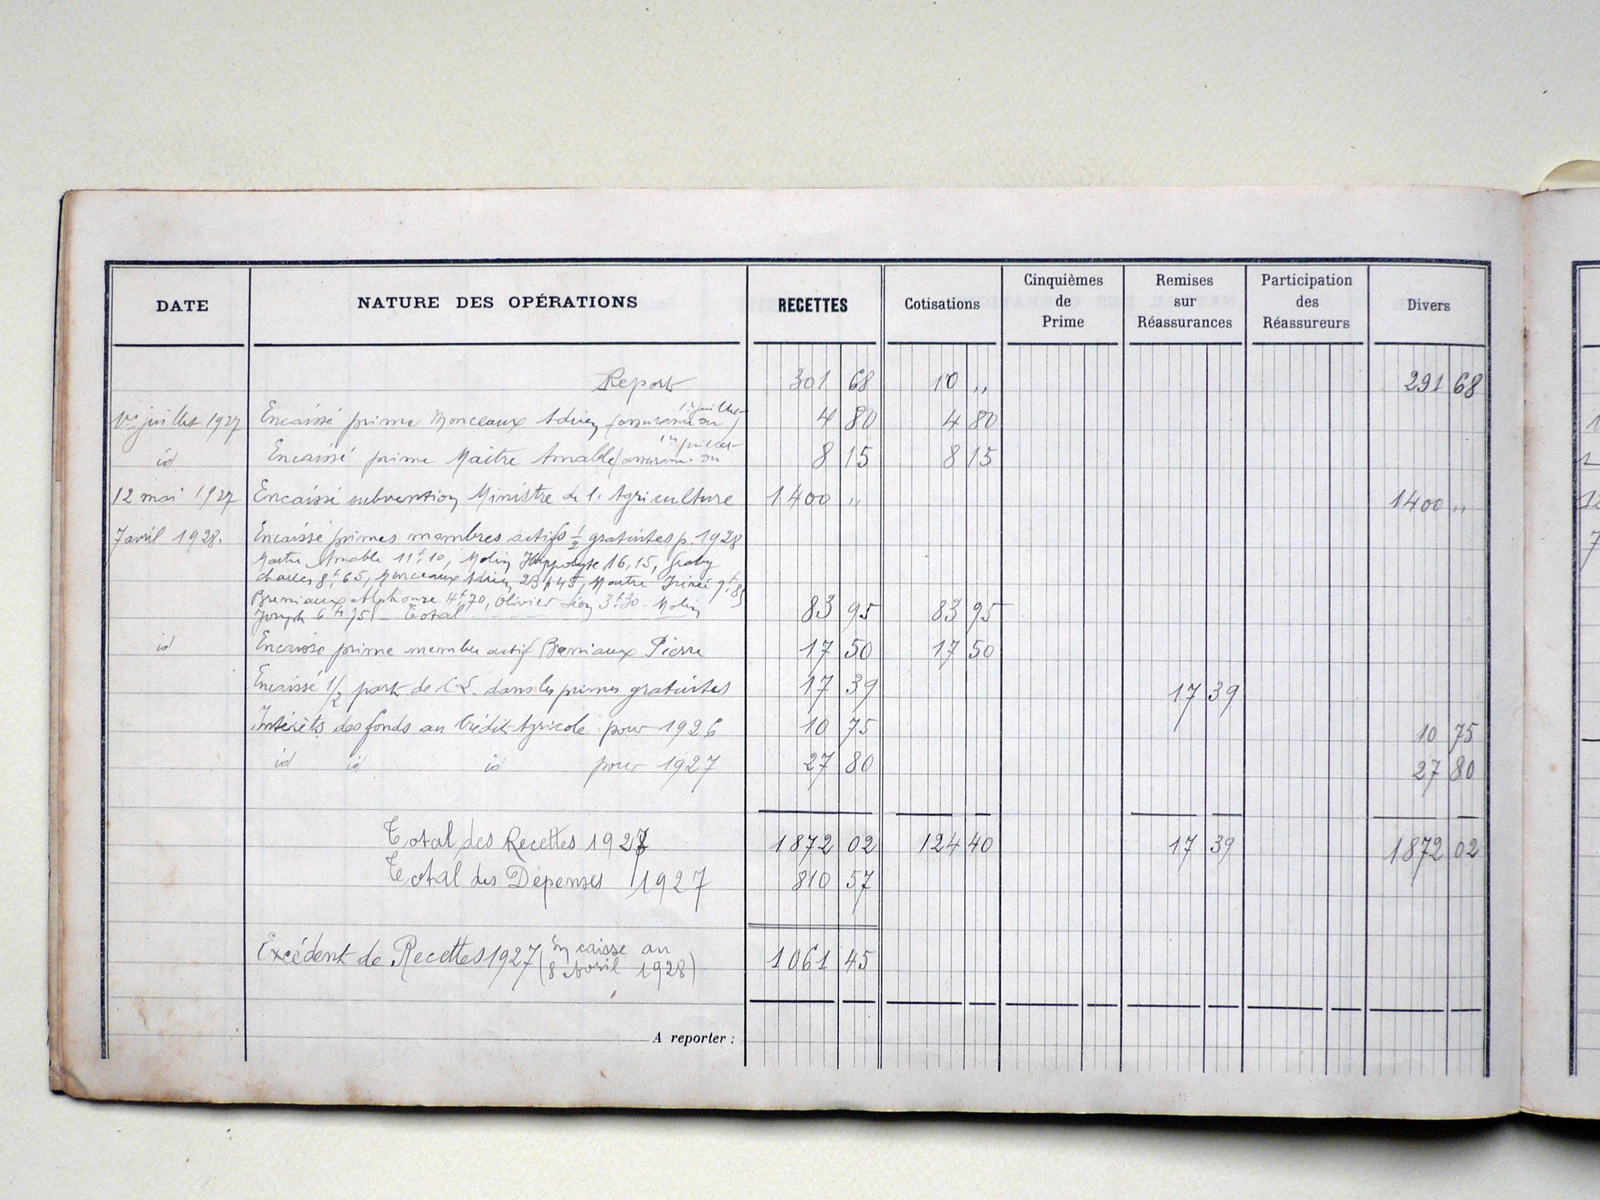 DATE NATURE DES OPÉRATIONS RECETTES Cotisations Cinquièmes de Prime Remises sur Réassurances Participation des Réassureurs Divers
Report 301 68 10 ,, 291 68
1er juillet 1927 Encaissé prime Monceaux Adrien (assurance du 1er juillet) 4 80 4 80
id Encaissé prime Maitre Amable (assurance du 1er juillet 8 15 8 15
12 mai 1927 Encaissé subvention Ministre de l'Agriculture 1400 ,, 1400 ,,
7 avril 1928. Encaissé primes membres actifs 1/2 gratuites p. 1928
Maitre Amable 11f10, Molin Hippolyte 16,15, Graby
Charles 8f65, Monceaux Adrien 23f45, Maitre Irénée 9f85
Bremiaux Alphonse 4f70, Olivier Léon 3f30 Molin
Joseph 6f75) Total 83 95 83 95
id Encaissé prime membre actif Bremiaux Pierre 17 50 17 50
Encaissé 1/2 part de C.L. dans les primes gratuites 17 39 17 39
Intérêts des fonds au Crédit Agricole pour 1926 10 75 10 75
id id id pour 1927 27 80 27 80
Total des Recettes 1927 1872 02 124 40 17 39 1872 02
Total des Dépenses 1927 810 57
Excédent de Recettes 1927 (En caisse au 8 Avril 1928) 1061 45
A reporter :